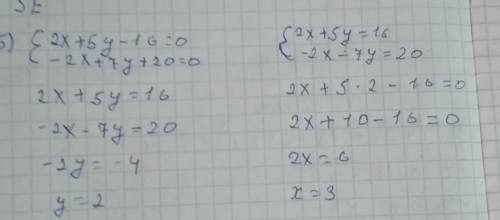 5) {2x+5y-16=0
-2x+7y+20=0
2x+5y=16
-2x-7y=20
-2y=-4
y=2
{2x+5y=16
-2x-7y=20
2x+5·2-16=0
2x+10-16=0
2x=6
x=3